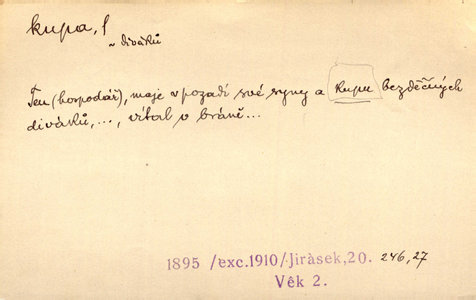 kupa, f
~ diváků
Ten (hospodář), maje v pozadí své syny a kupu bezděčných
diváků, ..., vítal v bráně ...
1895 /exc.1910/-Jiràsek,20. 246,27
Vêk 2.